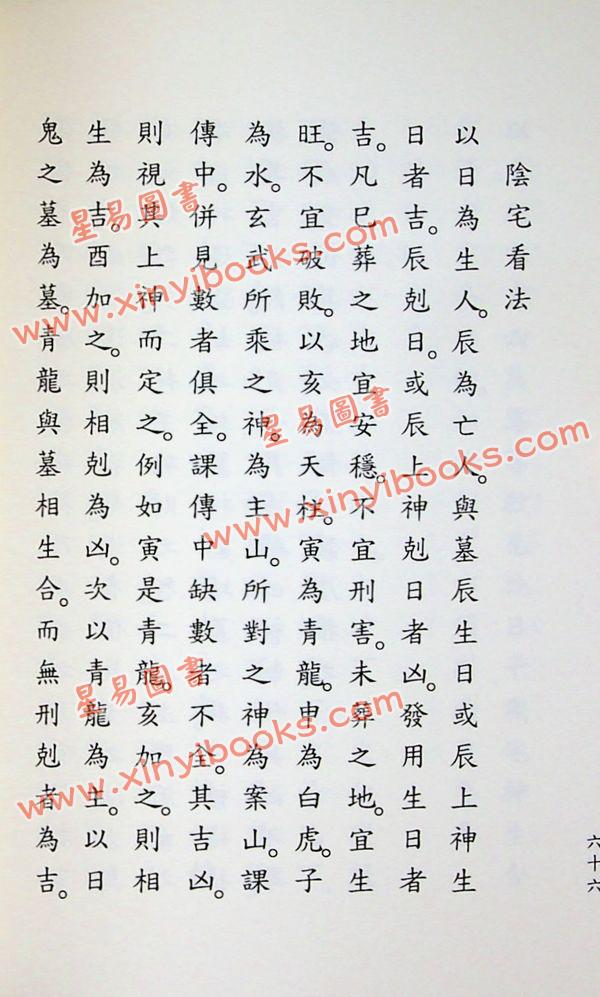 陰宅看法
以日為生人。辰為亡人。與墓辰生日或辰上神生
日者吉。辰剋日。或辰上神剋日者凶。發用生日者
吉。凡巳葬之地宜安穩。不宜刑害。未葬之地。宜生
旺。不宜破敗。以亥為天柱。寅為青龍。申為白虎。子
為水。玄武所乘之神。為主山。所對之神為案山。課
傳中。併見數者俱全。課傳中缺數者不全。其吉凶。
則視其上神而定之。例如寅是青龍。亥加之。則相
生為吉。酉加之。則相剋為凶。次以青龍為生。以日
鬼之墓為墓。青龍與墓相生合。而無刑剋者為吉。
六十六
星易圖書
www.xinyibooks.com
星易圖書
www.xinyibooks.com
星易圖書
www.xinyibooks.com